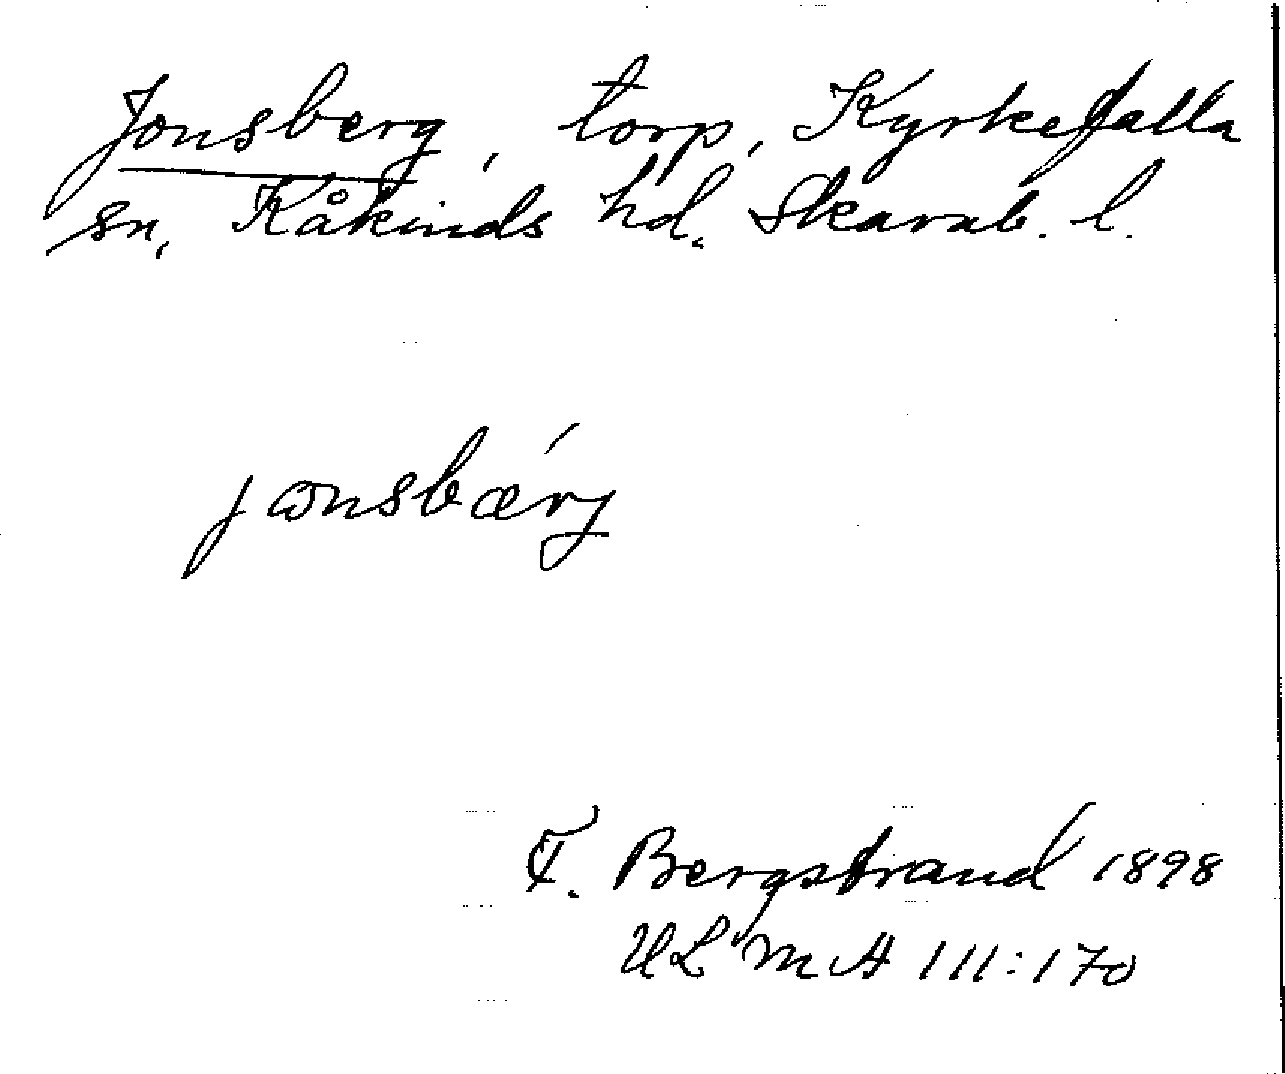 Jonsberg, torp, Kyrkefalla
sn, Kåkinds hd. Skarab. l.
jɷnsbǽrj
F. Bergstrand 1898
ULMA 111:170